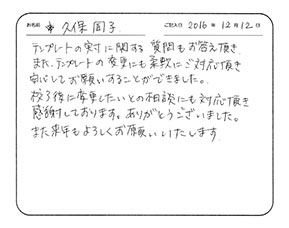 お名前 久保 周子 ご記入日 2016 年 12 月 12 日
テンプレートの実寸に関する 質問もお答え頂き
また、テンプレートの変更にも柔軟にご対応頂き
安心してお願いすることができました。
校了後に変更したいとの相談にも対応頂き
感謝しております。ありがとうございました。
また来年もよろしくお願いいたします。